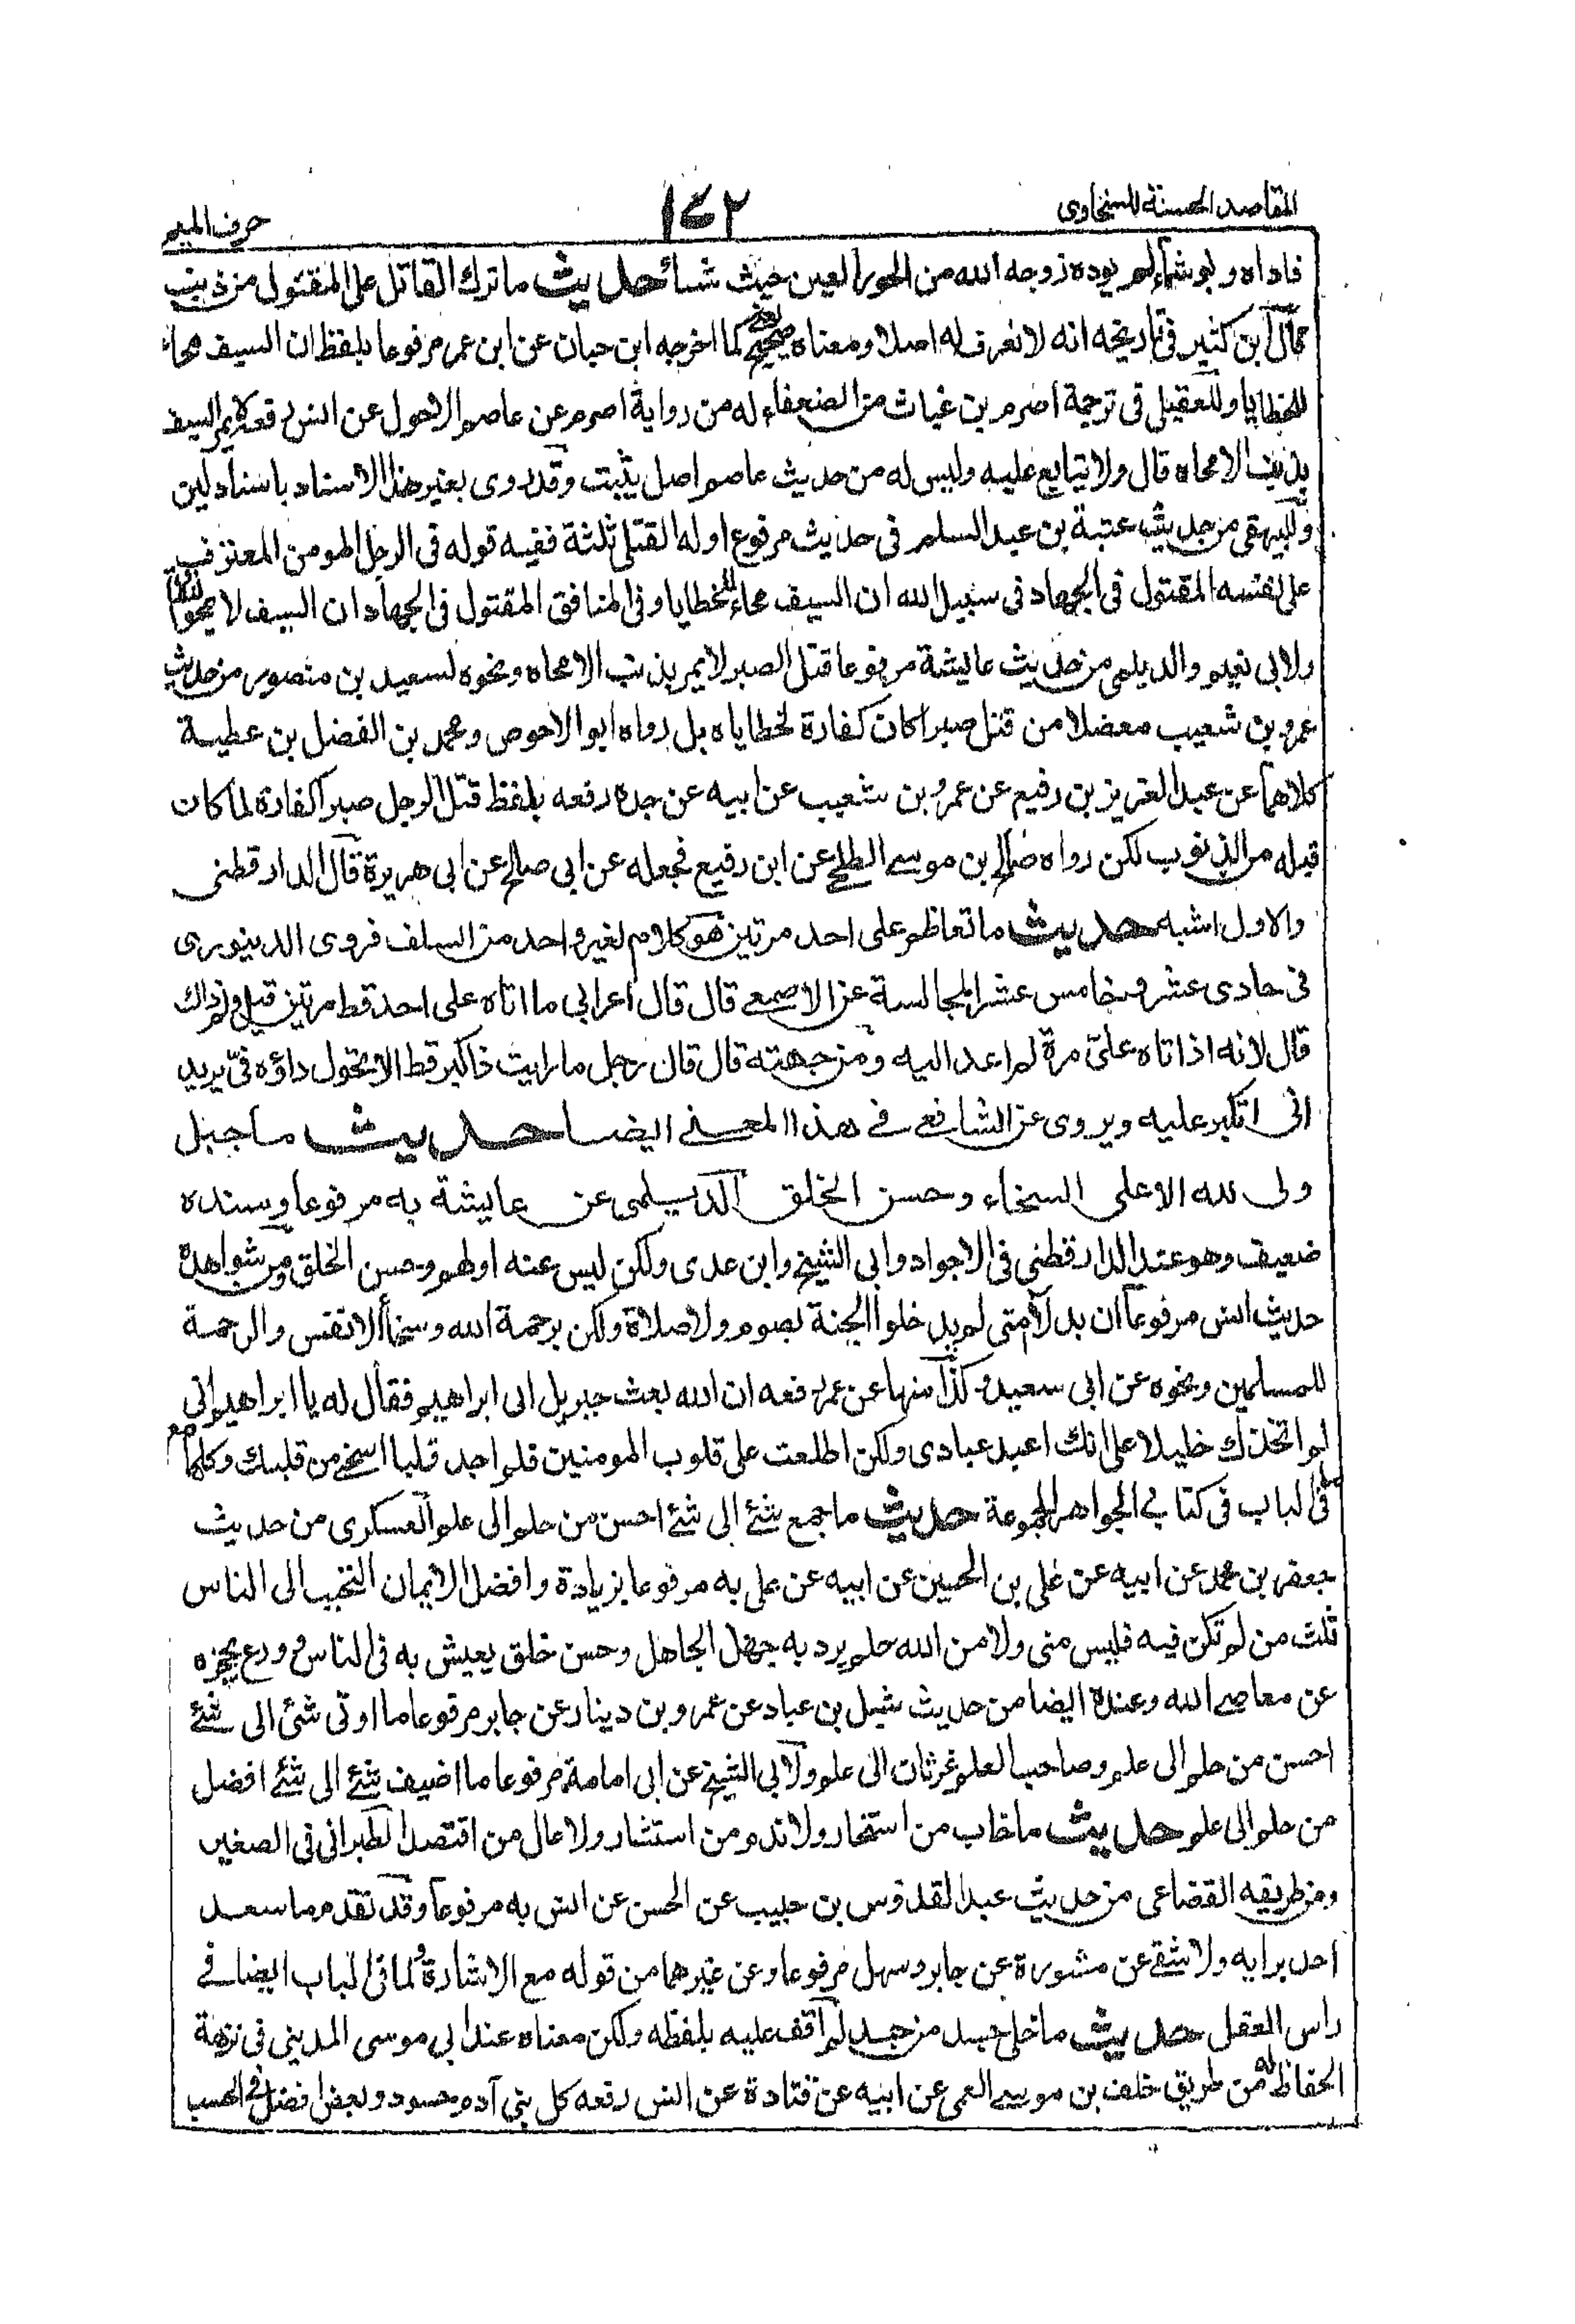 المقاصد الحسنة للسخاوى
١٧٢
حرف الميم
فاداه ولو شاء لم يوده زوجه الله من الحور العين حيث شاء حديث ما ترك القاتل على المقتول من ذنب
قال ابن كثير فى تاريخه انه لا نعرف له اصلا ومعناه صحيح كما اخرجه ابن حبان عن ابن عمر مرفوعا بلفظ ان السيف محاء
للخطايا وللعقيلى فى ترجمة اصرم بن غياث من الضعفاء له من رواية اصرم عن عاصم الاحول عن انس رفعه لا يمر السيف
بذنب الا محاه قال ولا يتابع عليه وليس له من حديث عاصم اصل يثبت وقد روى بغير هذا الاسناد باسناد لين
وللبيهقى من حديث عتبة بن عبد السلم فى حديث مرفوع اوله القتلى ثلثة ففيه قوله فى الرجل المومن المعترف
على نفسه المقتول فى الجهاد فى سبيل الله ان السيف محاء للخطايا وفى المنافق المقتول فى الجهاد ان السيف لا يمحو النفاق
ولابى نعيم والديلمى من حديث عايشة مرفوعا قتل الصبر لا يمر بذنب الا محاه ونحوه لسعيد بن منصور من حديث
عمرو بن شعيب معضلا من قتل صبرا كان كفارة لخطاياه بل رواه ابو الاحوص ومحمد بن الفضل بن عطية
كلاهما عن عبد العزيز بن رفيع عن عمرو بن شعيب عن ابيه عن جده رفعه بلفظ قتل الرجل صبرا كفارة لما كان
قبله من الذنوب لكن رواه صالح بن موسى الطلحى عن ابن رفيع فجعله عن ابى صالح عن ابى هريرة قال الدارقطنى
والاول اشبه حديث ما تعاظم على احد مرتين هو كلام لغير واحد من السلف فروى الدينورى
فى حادى عشر وخامس عشر المجالسة عن الاصمعى قال قال اعرابى ما اتاه على احد قط مرتين قيل ولم ذاك
قال لانه اذا تاه على مرة لم اعد اليه ومن جهته قال قال رجل ما رايت ذا كبر قط الا تحول داؤه فى يريد
انى اتكبر عليه ويروى عن الشافعى فى هذا المعنى ايضا حديث ما جبل
ولى لله الا على السخاء وحسن الخلق الديلمى عن عايشة به مرفوعا وسنده
ضعيف وهو عند الدارقطنى فى الاجواد وابى الشيخ وابن عدى ولكن ليس عند اولهم وحسن الخلق ومن شواهده
حديث انس مرفوعا ان بدلاء امتى لم يدخلوا الجنة بصوم ولا صلاة ولكن برحمة الله وسخاء الانفس والرحمة
للمسلمين ونحوه عن ابى سعيد وكذا منها عن عمر رفعه ان الله بعث جبريل الى ابراهيم فقال له يا ابراهيم انى
لم اتخذك خليلا على انك اعبد عبادى ولكن اطلعت على قلوب المومنين فلم اجد قلبا اسخى من قلبك وكلها مع
ما فى الباب فى كتابى الجواهر المجموعة حديث ما جمع شئ الى شئ احسن من حلم الى علم العسكرى من حديث
جعفر بن محمد عن ابيه عن على بن الحسين عن ابيه عن على به مرفوعا بزيادة وافضل الايمان التحبب الى الناس
ثلث من لم تكن فيه فليس منى ولا من الله حلم يرد به جهل الجاهل وحسن خلق يعيش به فى الناس وورع يحجزه
عن معاصى الله وعنده ايضا من حديث شبل بن عباد عن عمرو بن دينار عن جابر مرفوعا ما اوتى شئ الى شئ
احسن من حلم الى علم وصاحب العلم غرثان الى علم ولابى الشيخ عن ابى امامة مرفوعا ما اضيف شئ الى شئ افضل
من حلم الى علم حديث ما خاب من استخار ولا ندم من استشار ولا عال من اقتصد الطبرانى فى الصغير
ومن طريقه القضاعى من حديث عبد القدوس بن حبيب عن الحسن عن انس به مرفوعا وقد تقدم ما سعد
احد برايه ولا شقى عن مشورة عن جابر وسهل مرفوعا وعن غيرهما من قوله مع الاشارة لما فى الباب ايضا فى
راس العقل حديث ما خلى جسد من حسد لم اقف عليه بلفظه ولكن معناه عند ابى موسى المدينى فى نزهة
الحفاظ له من طريق خلف بن موسى العمى عن ابيه عن قتادة عن انس رفعه كل بنى آدم حسود وبعض افضل فى الحسد